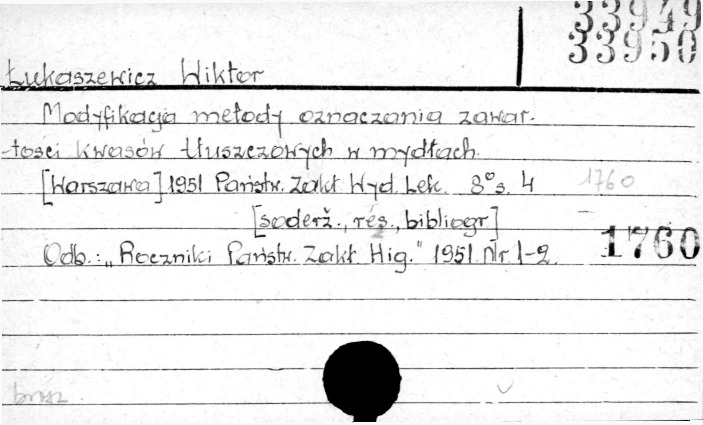 33949
33950
Łukaszewicz Wiktor
Modyfikacja metody oznaczania zawar-
tości kwasów tłuszczowych w mydłach.
[Warszawa] 1951 Państw. Zakł. Wyd. Lek. 8° s. 4 1760
[soderž., rés., bibliogr]
Odb.: „Roczniki Państw. Zakł. Hig." 1951 Nr 1-2. 1760
brosz